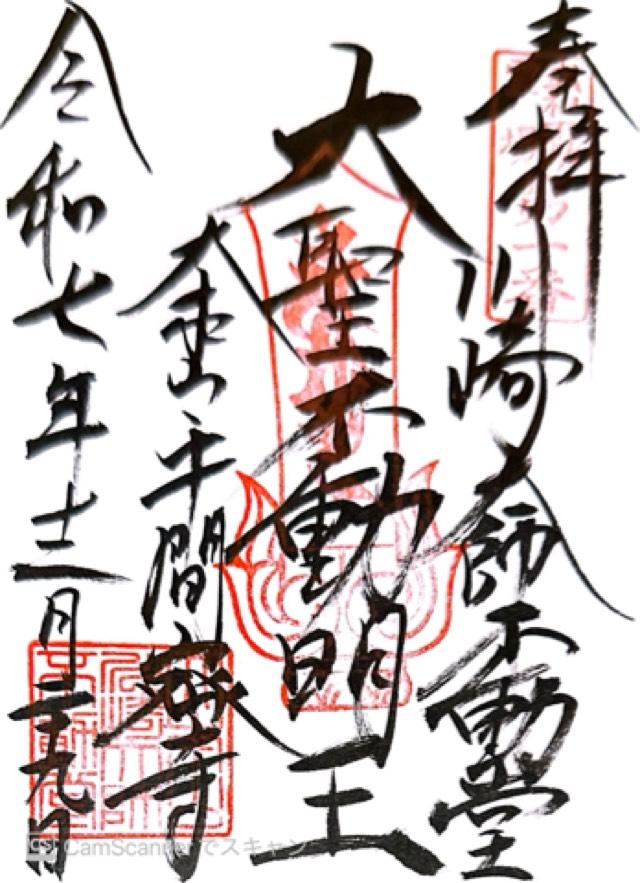 奉拝
川崎大師不動堂
大聖不動明王
金山平間寺
令和七年十二月二十九日
CamScannerでスキャン